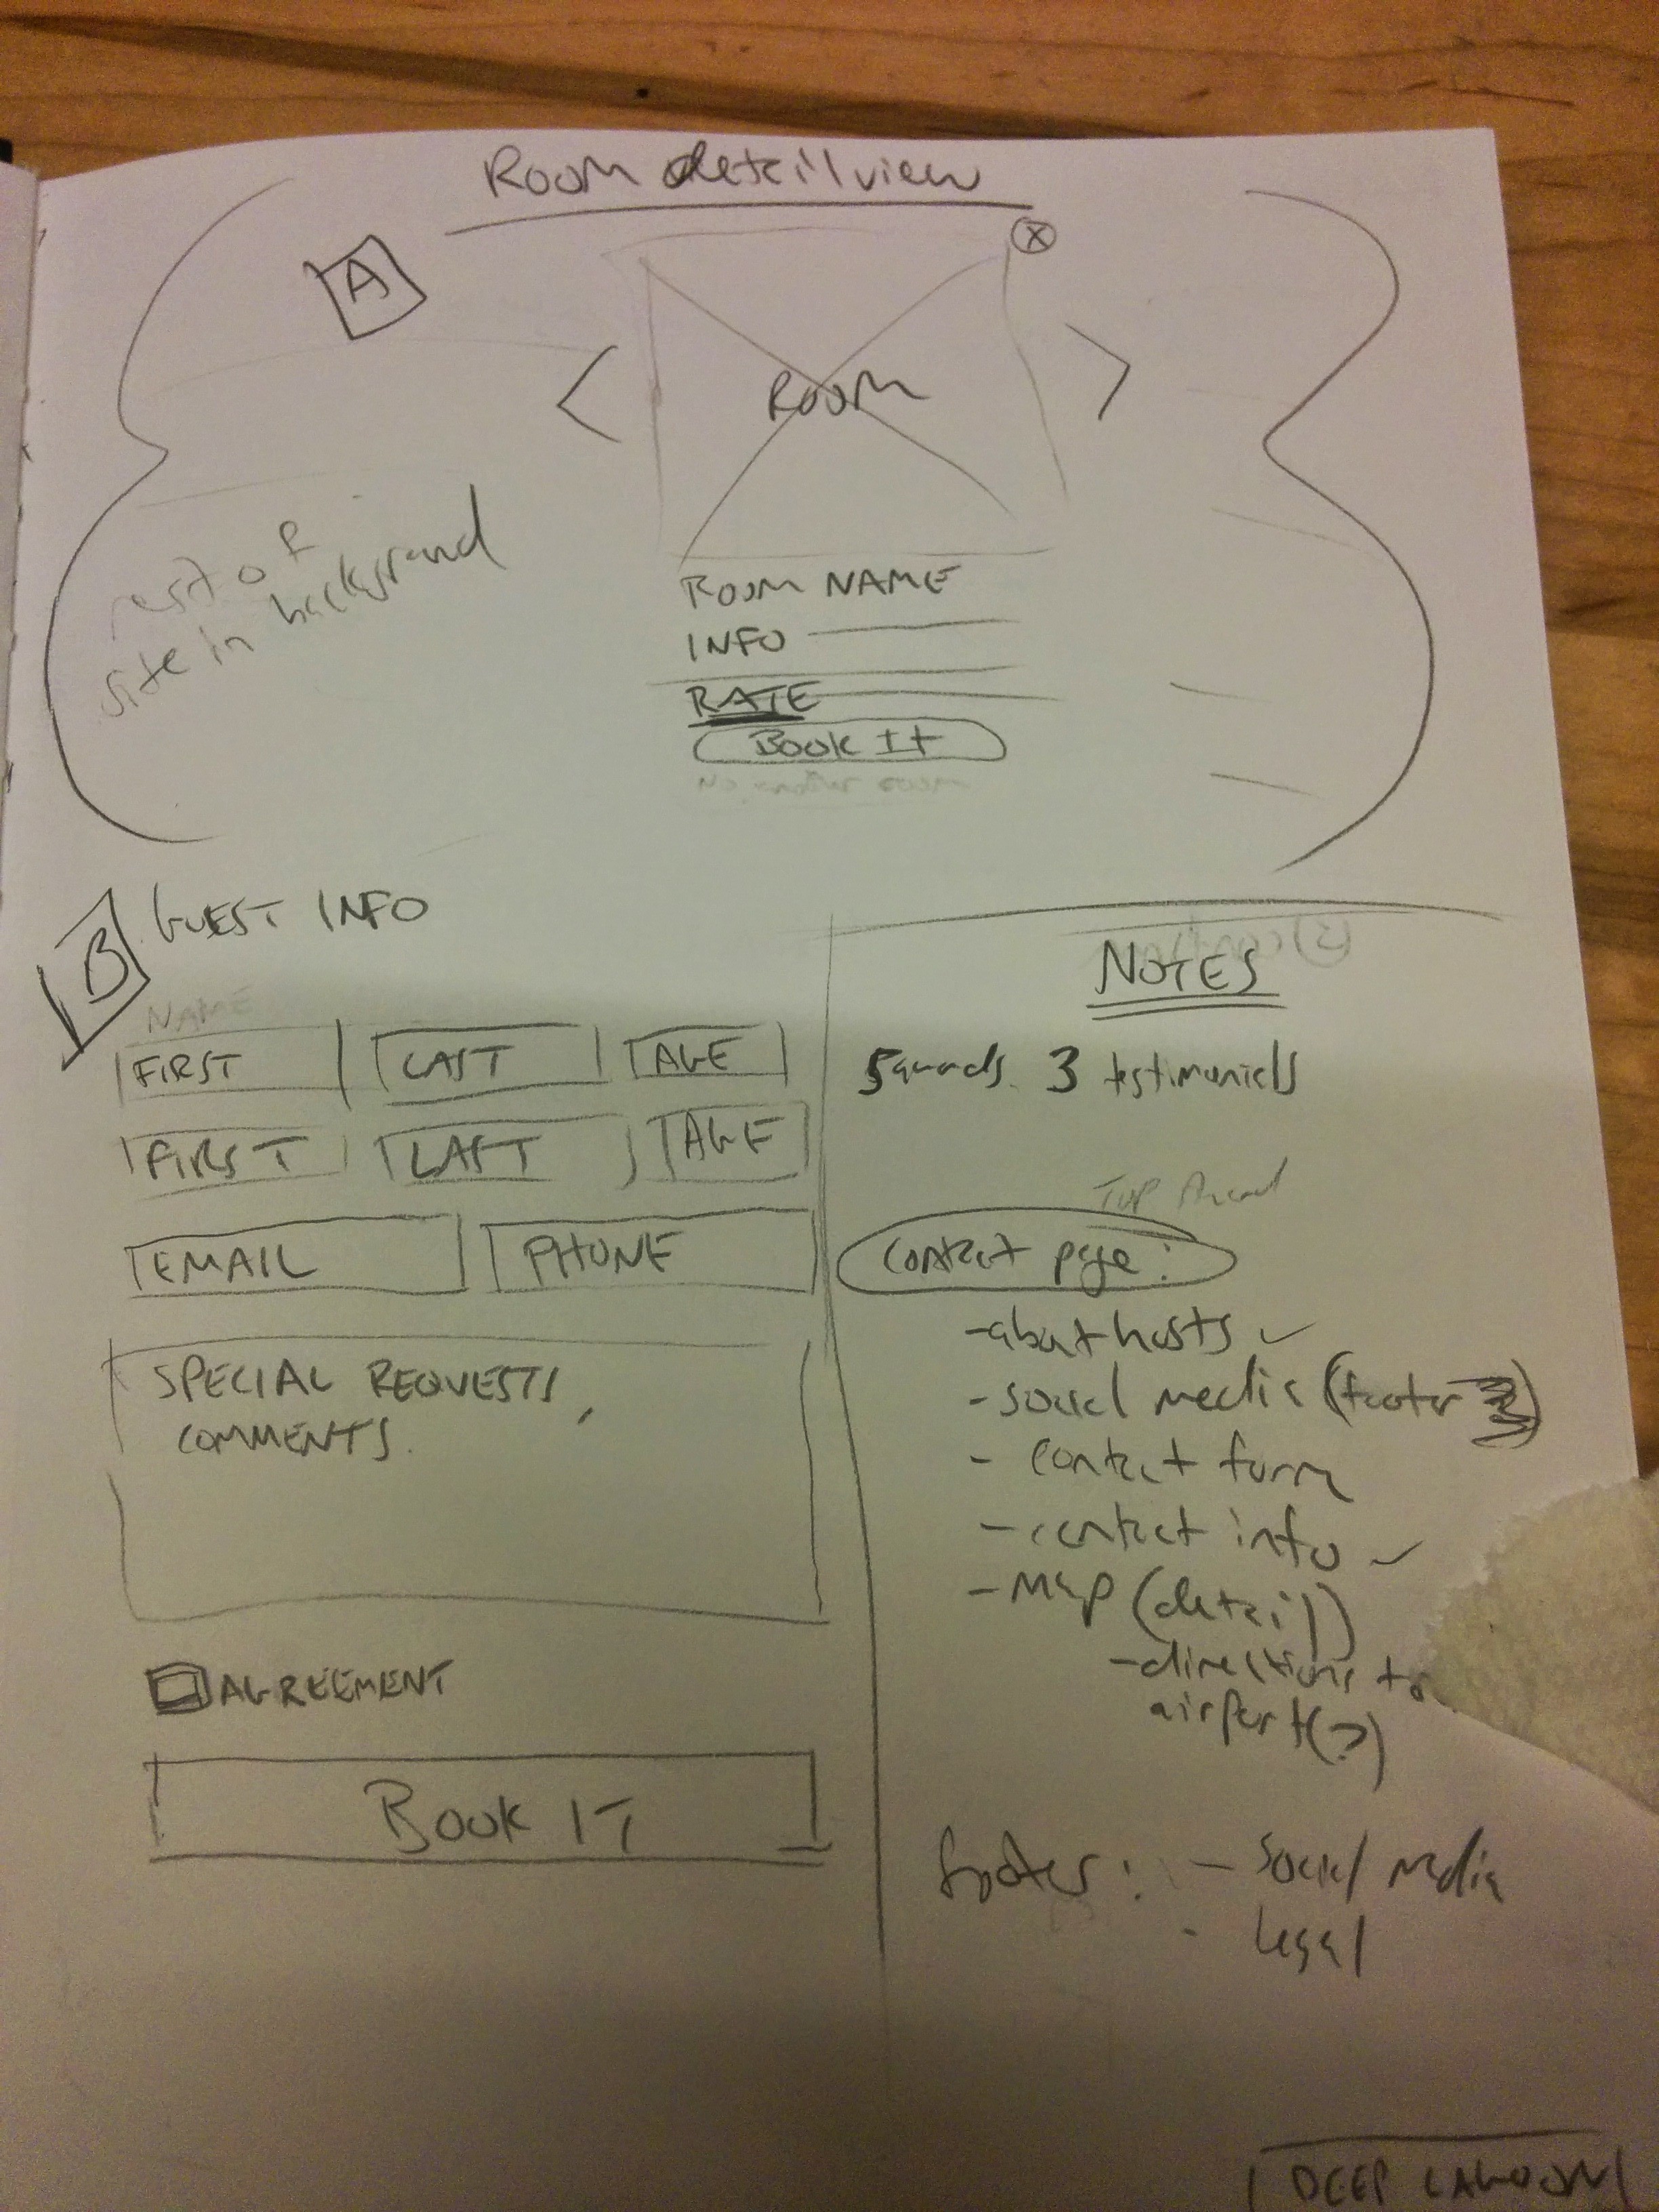 Room detail view
X
A
< ROOM >
rest of
site in background
ROOM NAME
INFO
RATE
Book It
No another room
B GUEST INFO
NAME
FIRST LAST AGE
FIRST LAST AGE
EMAIL PHONE
SPECIAL REQUESTS,
COMMENTS.
AGREEMENT
BOOK IT
NOTES
3 testimonials
TOP
contact page:
- about hosts ✓
- social media (footer)
- contact form
- contact info ✓
- Map (detail)
- directions to
airport(?)
footer: - social media
- legal
DEEP LAGOON